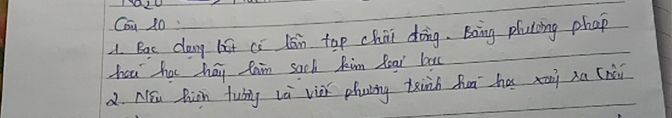 Na2O
Câu 10 :
1. Bạc dạng bột có lẫn tạp chất đồng. Bằng phương pháp
hoá học hãy làm sạch kim loại bạc
2. Nêu hiện tượng và viết phương trình hoá học xảy ra (nếu